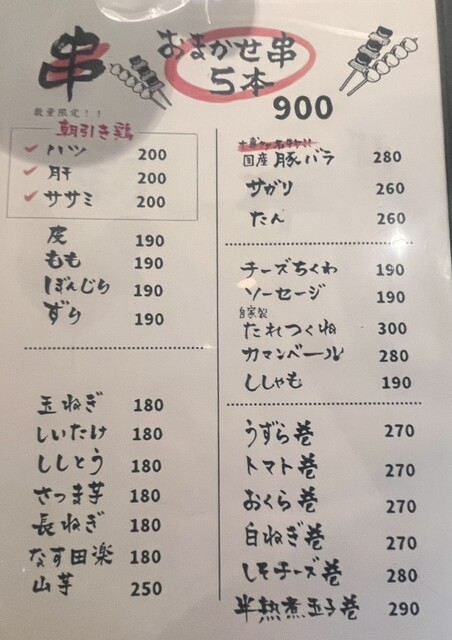 串
おまかせ串
5本
900
数量限定!!
朝引き鶏
ハツ 200
肝 200
ササミ 200
皮 190
もも 190
ぼんじり 190
ずり 190
玉ねぎ 180
しいたけ 180
ししとう 180
さつま芋 180
長ねぎ 180
なす田楽 180
山芋 250
国産 豚バラ 280
サガリ 260
たん 260
チーズちくわ 190
ソーセージ 190
自家製
たれつくね 300
カマンベール 280
ししゃも 190
うずら巻 270
トマト巻 270
おくら巻 270
白ねぎ巻 270
しそチーズ巻 280
半熟煮玉子巻 290